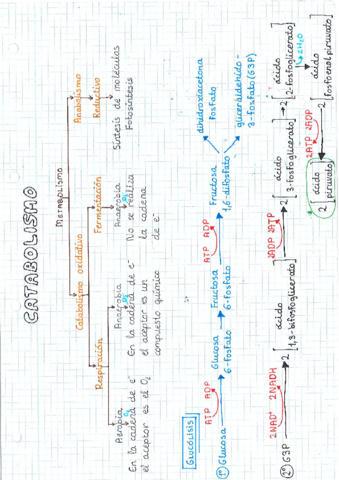 CATABOLISMO
Metabolismo
Catabolismo oxidativo
Anabolismo
Reductivo
Síntesis de moléculas
Fotosíntesis
Respiración
Fermentación
Aerobia
O₂
En la cadena de e⁻
el aceptor es el O₂
Anaerobia
O₂
En la cadena de e⁻
el aceptor es un
compuesto químico
Anaerobia
O₂
No se realiza
la cadena
de e⁻
GLUCÓLISIS
1º Glucosa
ATP ADP
Glucosa
6-fosfato
Fructosa
6-fosfato
ATP ADP
Fructosa
1,6-difosfato
dihidroxiacetona
fosfato
gliceraldehído-
3-fosfato (G3P)
2º G3P
2NAD⁺ 2NADH
2 [ácido
1,3-bifosfoglicerato]
2ADP 2ATP
2 [ácido
3-fosfoglicerato]
2 [ácido
2-fosfoglicerato]
2H₂O
2 [ácido
fosfoenolpiruvato]
2ATP 2ADP
2 [ácido
piruvato]